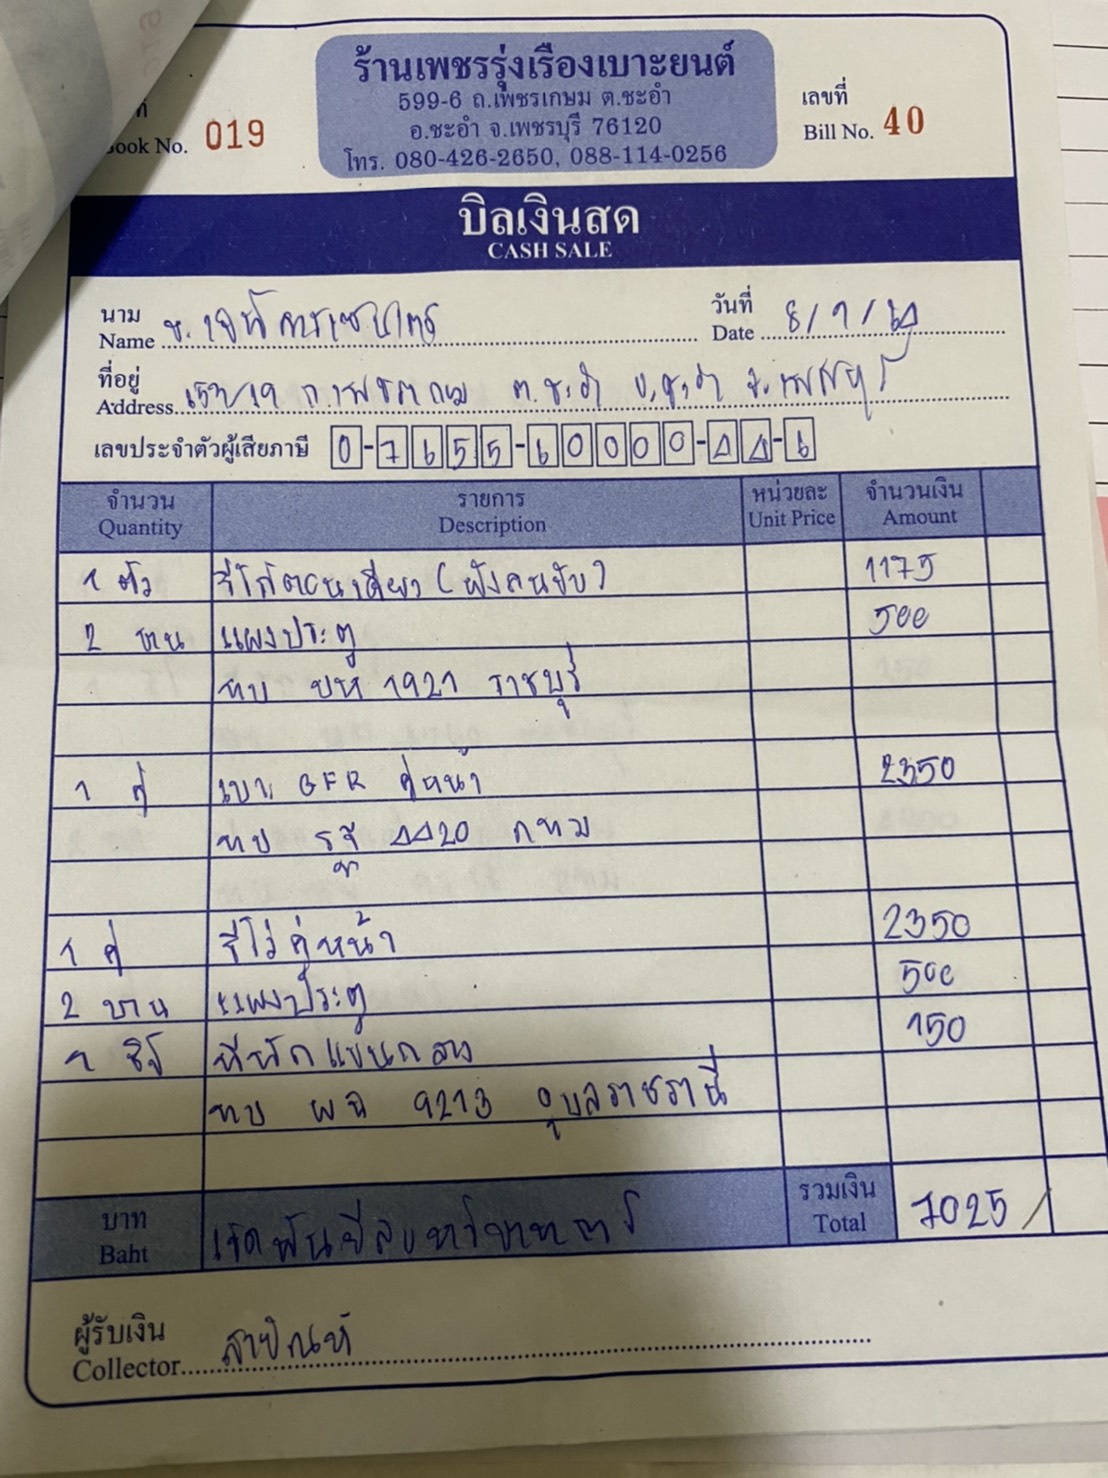 ร้านเพชรรุ่งเรืองเบาะยนต์
599-6 ถ.เพชรเกษม ต.ชะอำ
อ.ชะอำ จ.เพชรบุรี 76120
โทร. 080-426-2650, 088-114-0256
ook No. 019
เลขที่
Bill No. 40
บิลเงินสด
CASH SALE
นาม
Name
วันที่
Date 8/9/64
ที่อยู่
Address ต.ชะอำ อ.ชะอำ จ.เพชรบุรี
เลขประจำตัวผู้เสียภาษี 0-7655-60000-44-6
จำนวน รายการ หน่วยละ จำนวนเงิน
Quantity Description Unit Price Amount
1 ตัว (ฝั่งคนขับ) 1175
2 บาน แผงประตู 500
ทบ บห 1921 ราชบุรี
1 คู่ เบาะ GFR คู่หน้า 2350
ทบ 4420 กทม
1 คู่ คู่หน้า 2350
2 บาน แผงประตู 500
1 ชิ้น ที่พักแขนกลาง 150
ทบ ผฉ 9213 อุบลราชธานี
บาท
Baht เจ็ดพันยี่สิบห้าบาทถ้วน
รวมเงิน
Total 7025/
ผู้รับเงิน
Collector